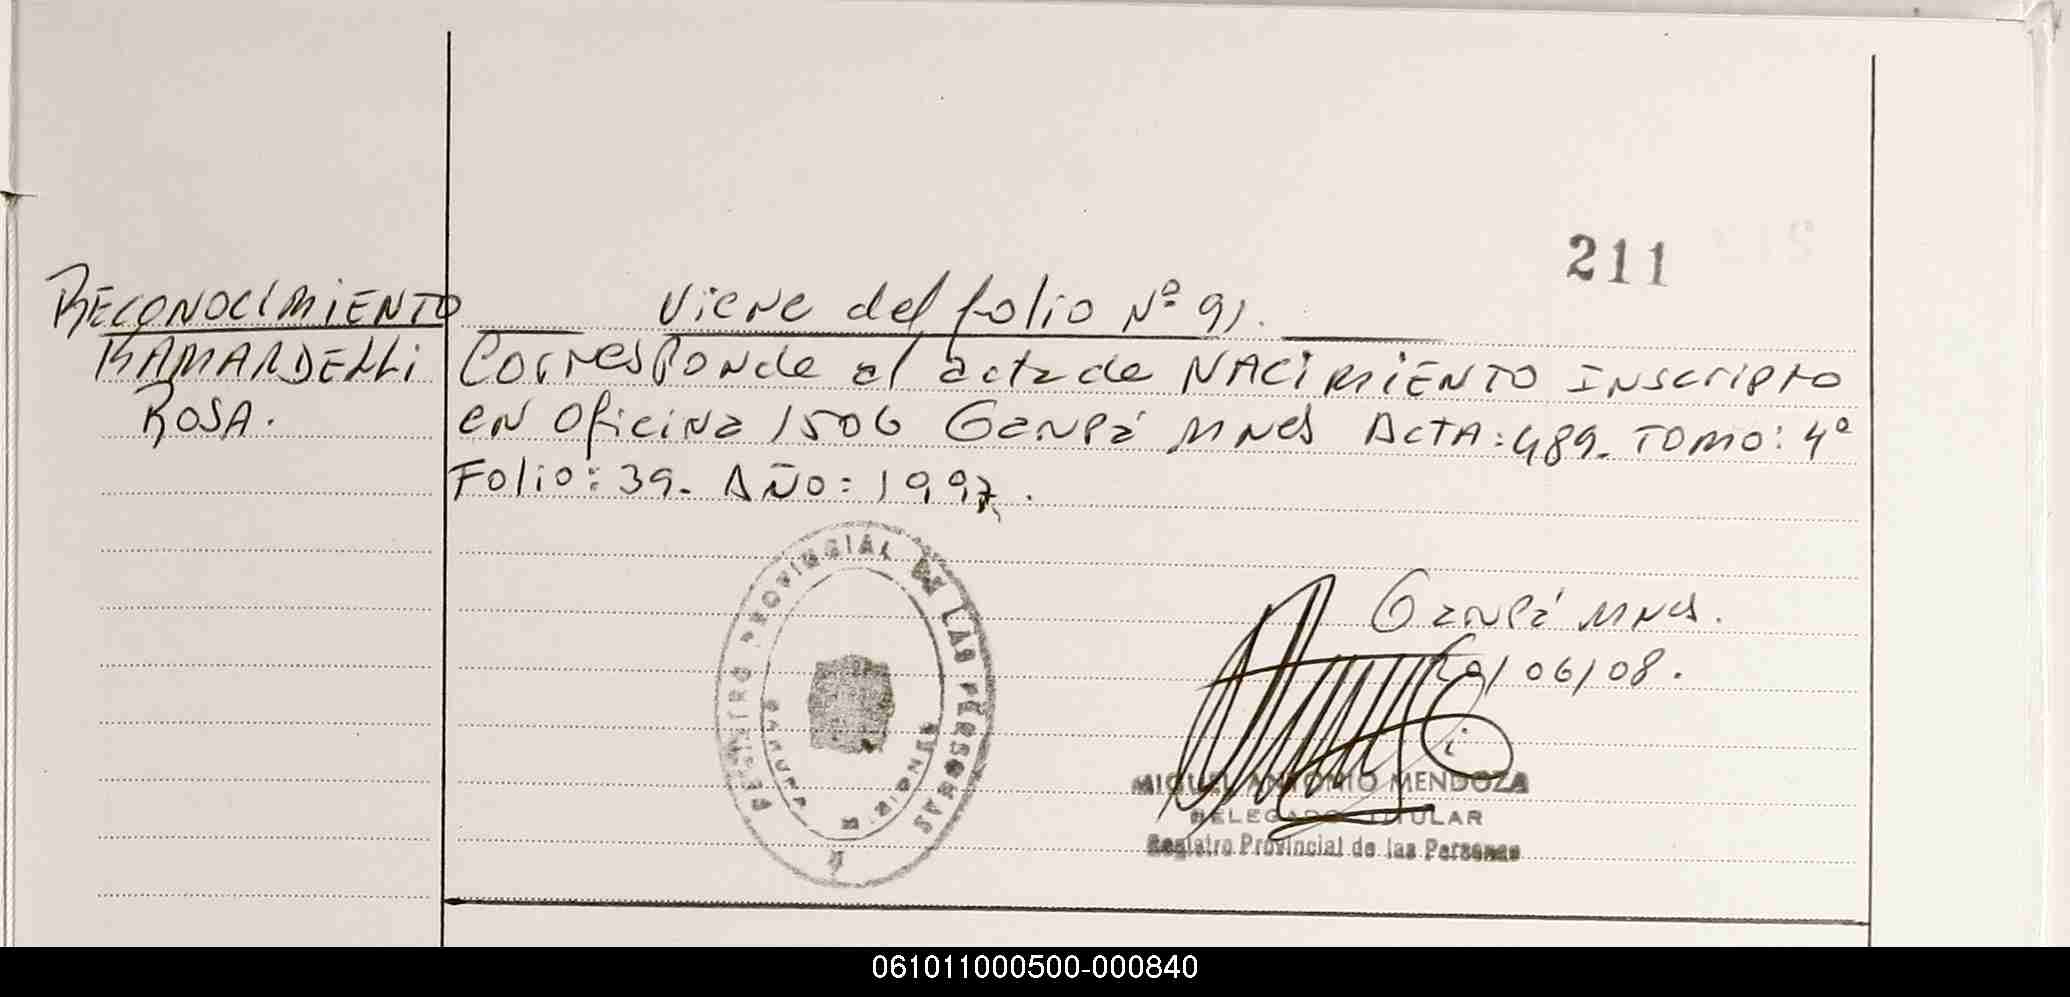 211
RECONOCIMIENTO
Viene del folio Nº 91.
RAMARDELLI
Corresponde al acta de NACIMIENTO Inscripto
ROSA.
en Oficina 1506 Garupá MNES ACTA: 489. TOMO: 4º
Folio: 39. AÑO: 1997.
REGISTRO PROVINCIAL DE LAS PERSONAS
Garupá Mnes.
/06/08.
MIGUEL ANTONIO MENDOZA
DELEGADO TITULAR
Registro Provincial de las Personas
061011000500-000840